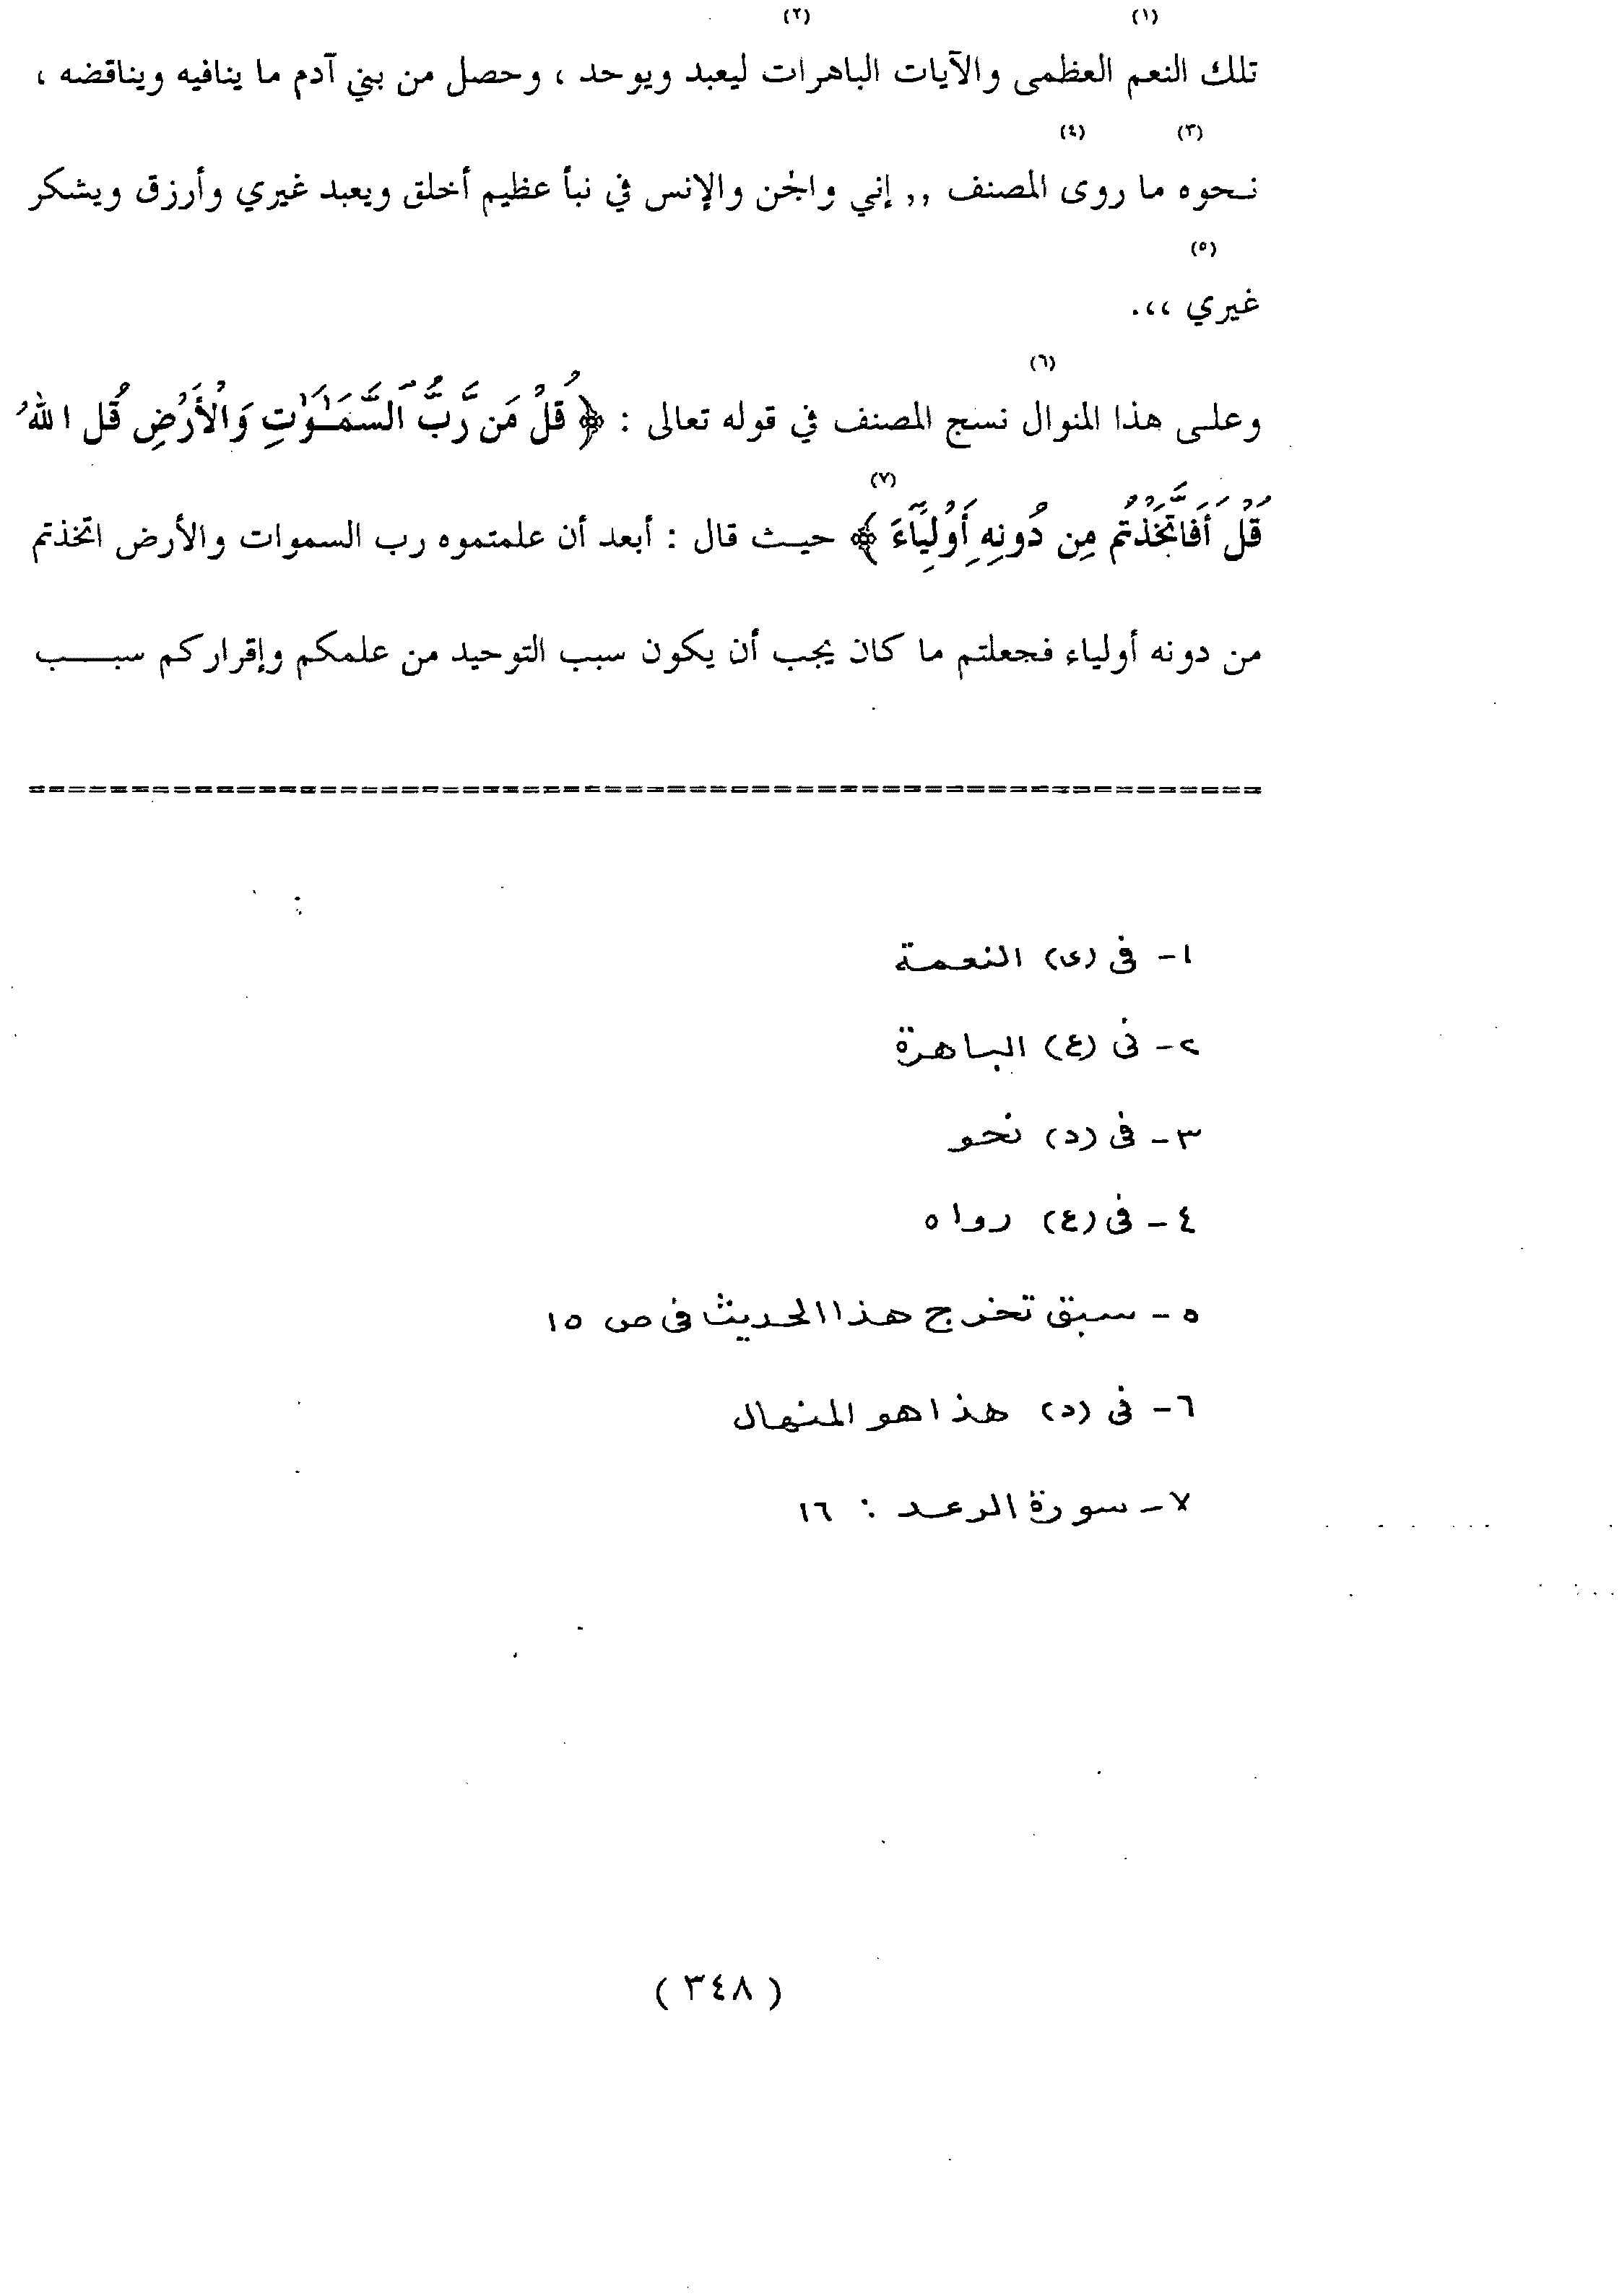 (١) (٢)
تلك النعم العظمى والآيات الباهرات ليعبد ويوحد ، وحصل من بني آدم ما ينافيه ويناقضه ،
(٣) (٤)
نـحوه ما روى المصنف ,, إني والجن والإنس في نبأ عظيم أخلق ويعبد غيري وأرزق ويشكر
(٥)
غيري ،،.
(٦)
وعلـى هذا المنوال نسج المصنف في قوله تعالى : ﴿ قُلْ مَن رَّبُّ السَّمَـٰوَٰتِ وَالْأَرْضِ قُلِ اللهُ
(٧)
قُلْ أَفَاتَّخَذْتُم مِن دُونِهِ أَوْلِيَآءَ ﴾ حيـث قال : أبعد أن علمتموه رب السموات والأرض اتخذتم
من دونه أولياء فجعلتم ما كان يجب أن يكون سبب التوحيد من علمكم وإقراركم سبـــب
================================================
١- فى (ى) النعمة
٢- فى (ع) الباهرة
٣- فى (د) نحو
٤- فى (ع) رواه
٥- سبق تخرج هذا الحديث فى ص ١٥
٦- فى (د) هذا هو المنهال
٧- سورة الرعد : ١٦
( ٣٤٨ )